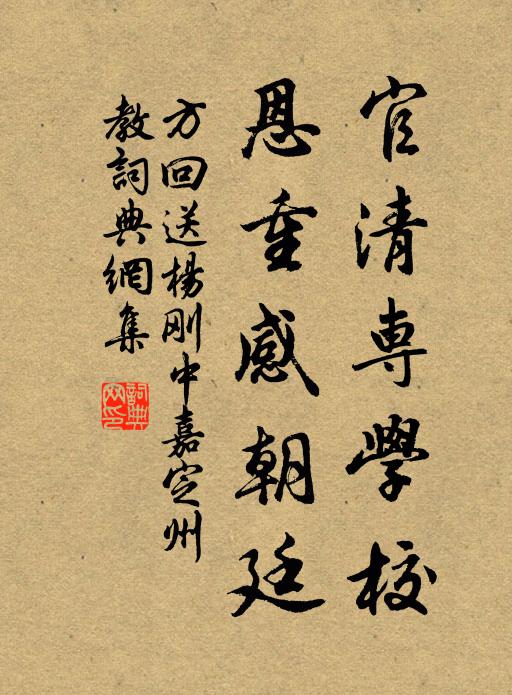 官清專學校
恩重感朝廷
方回送楊剛中嘉定州
教詞典網集
詞典網印